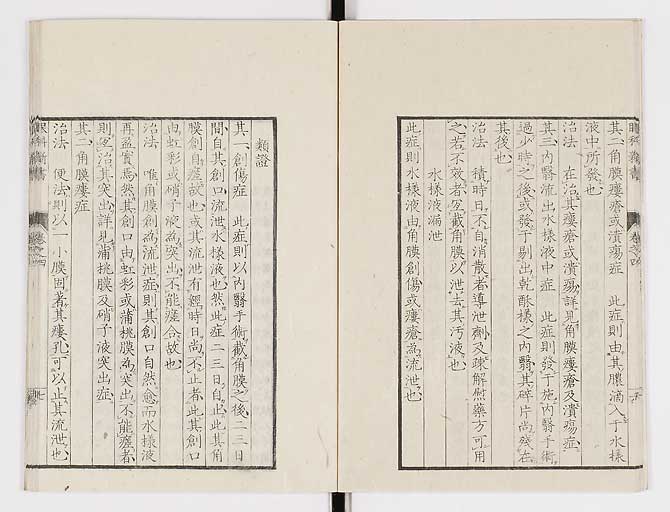 其二角膜瘻瘡或潰瘍症　此症則由其膿滴入于水樣
液中所發也
治法　在治其瘻瘡或潰瘍詳見角膜瘻瘡及潰瘍症
其三内翳流出水樣液中症　此症則發于施内翳手術
過少時之後或發于剔出乾酥樣之内翳其碎片尚殘在
其後也
治法　積時日不自消散者導泄劑及疎解慰藥方可用
之若不效者宜截角膜以泄去其汚液也
水樣液漏泄
此症則水樣液由角膜創傷或瘻瘡為流泄也
類證
其一創傷症　此症則以内翳手術截角膜之後二三日
間自其創口流泄水樣液也然此症二三日自止此其角
膜創自癒故也或其流泄有經時日尚不止者此其創口
由虹彩或硝子液為突出不能癒合故也
治法　唯角膜創為流泄症則其創口自然愈而水樣液
再盈實焉然其創口由虹彩或葡桃膜為突出不能癒者
則宜治其突出詳見葡桃膜及硝子液突出症
其二角膜瘻症
治法　便法則以一小膜固著其瘻孔可以止其流泄也
眼科新書
卷之四